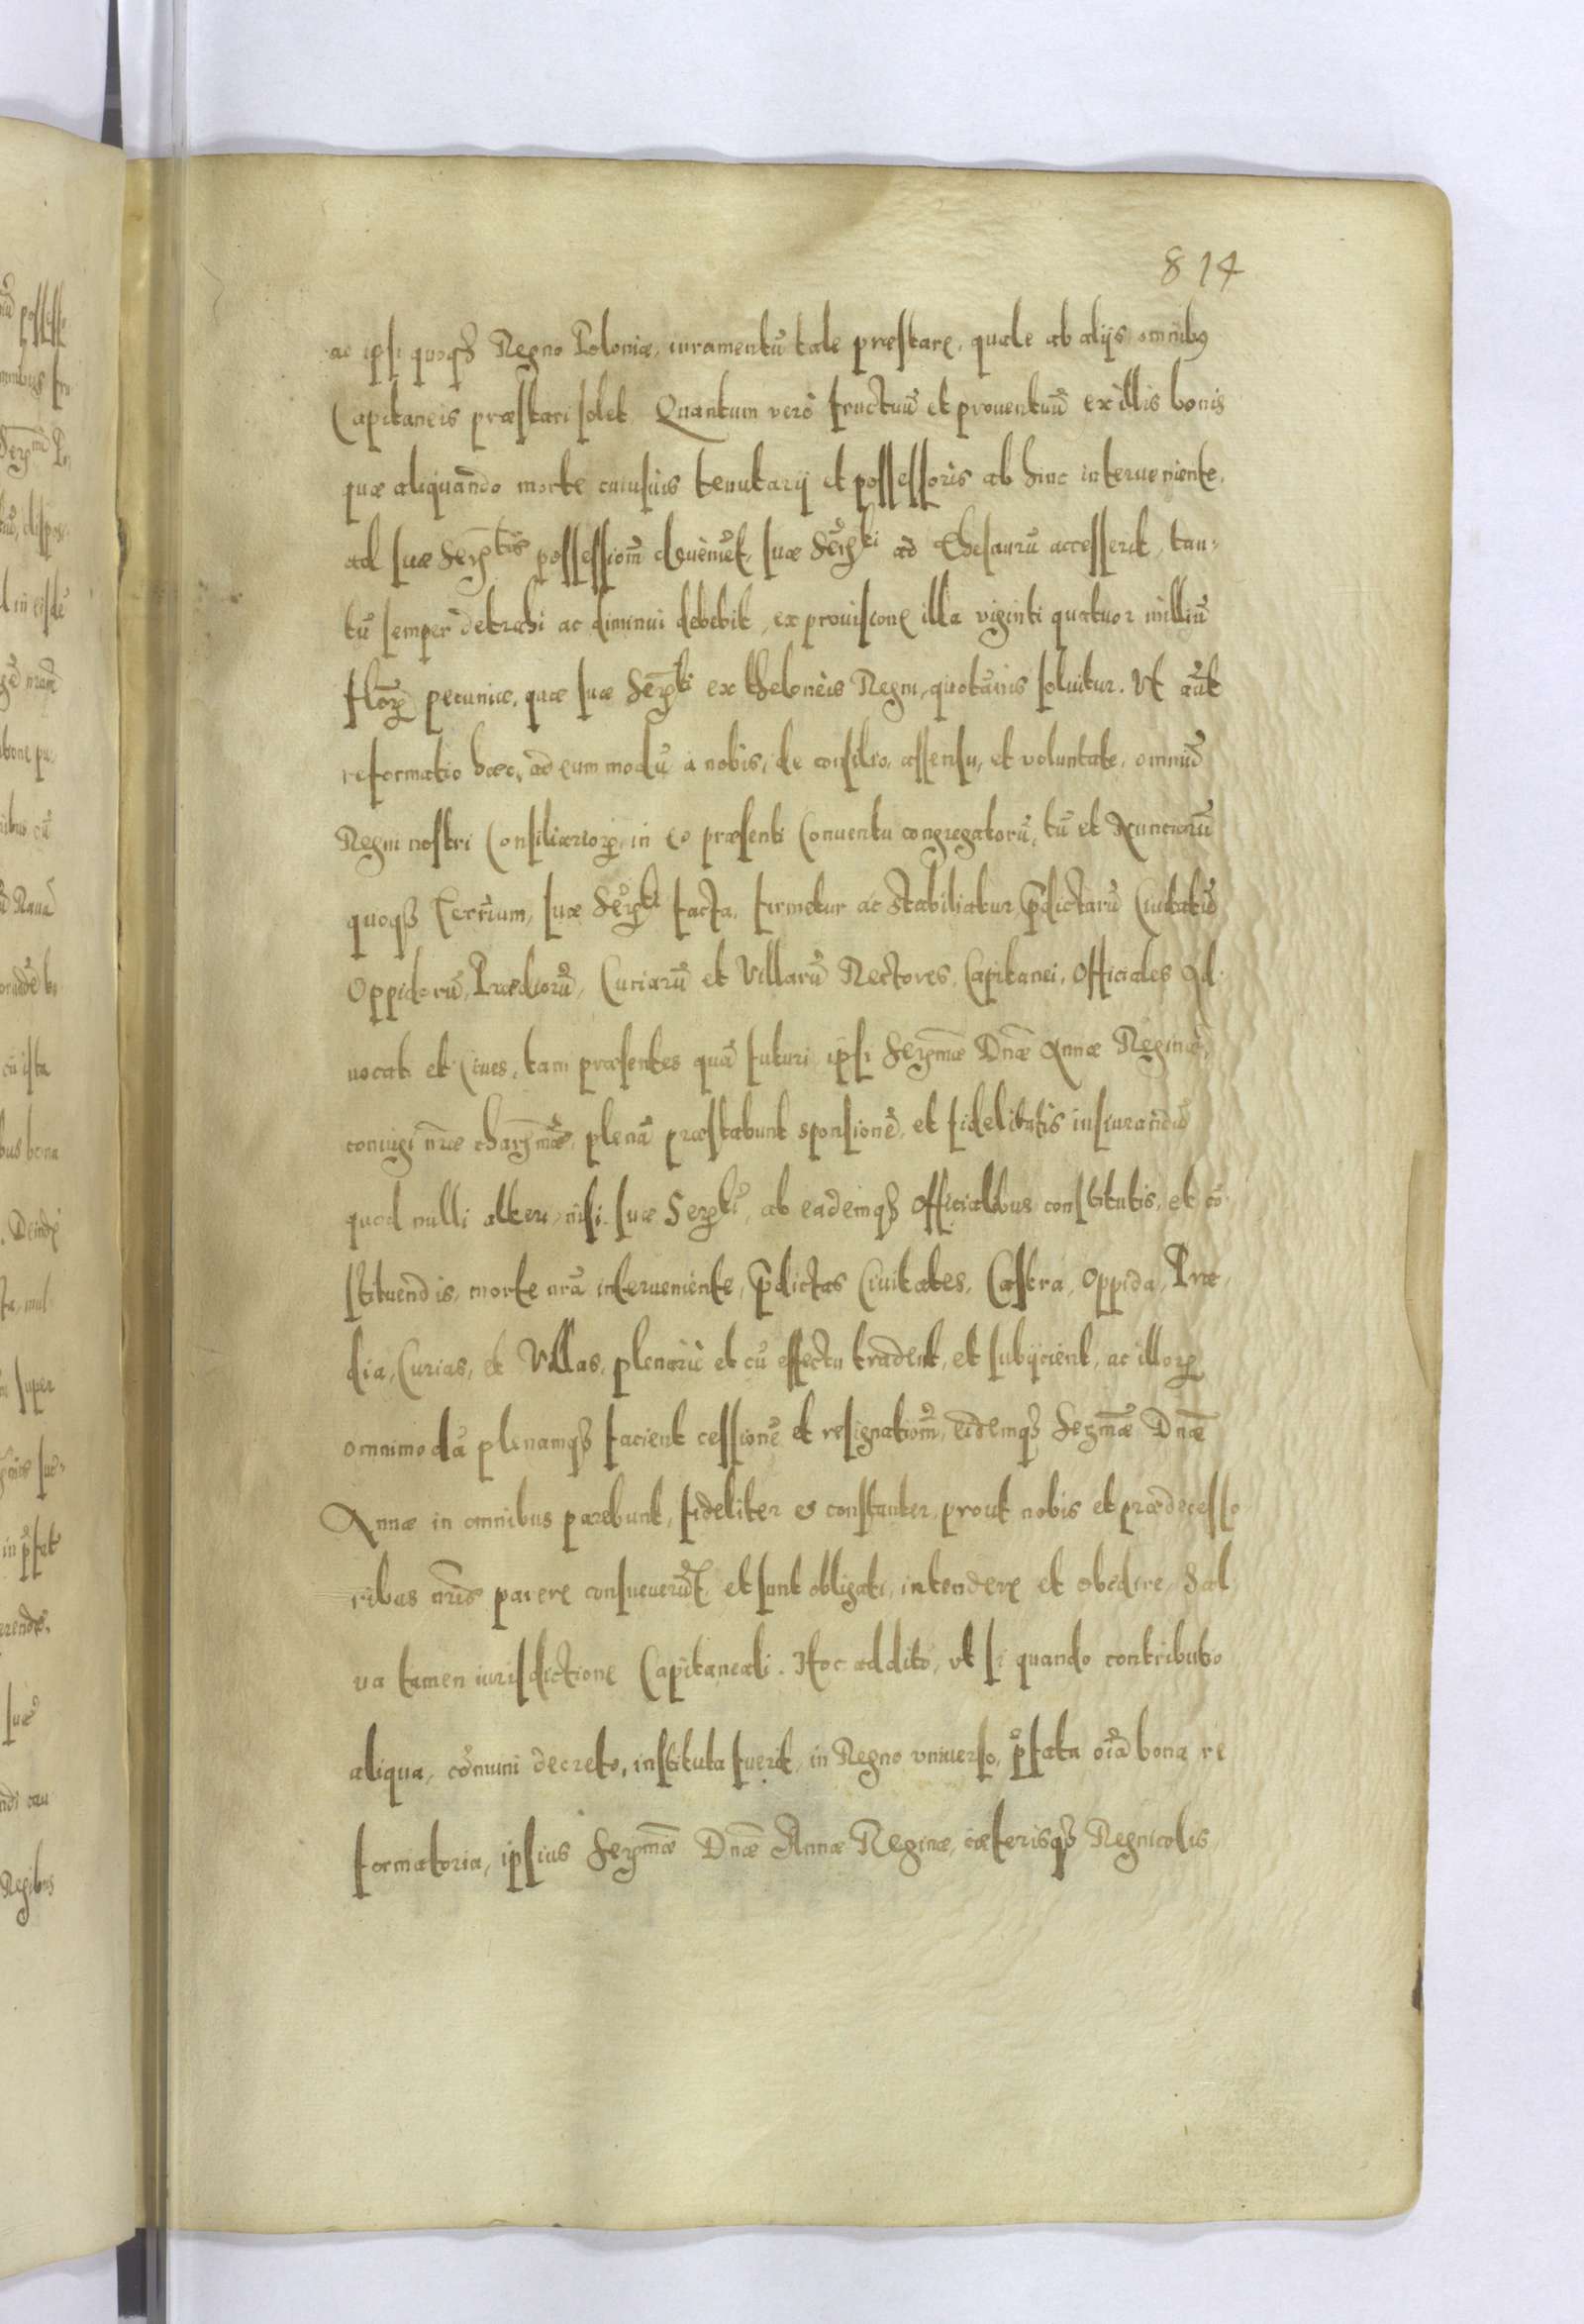 814
ac ipsi quoqꝫ Regno Poloniæ, iuramentũ tale præstare, quale ab alijs omnibꝯ
Capitaneis præstari solet. Quantum verò fructuũ et prouentuũ ex illis bonis
quæ aliquando morte cuiusuis tenutarij et possessoris ab hinc interueniente,
ad suæ Serꝫtis possessionẽ deuenerit, suæ Serꝫti ad Thesaurũ accesserit, tan-
tũ semper detrahi ac diminui debebit, ex prouisione illa viginti quatuor milliũ
florꝫ pecuniæ, quæ suæ Serꝫti ex theloneis Regni, quotannis soluitur. Vt aũt
reformatio hæc, ad eum modũ à nobis, de consilio, assensu, et voluntate, omniũ
Regni nostri Consiliariorꝫ, in eo præsenti Conuentu congregatorũ, tũ et Nunciorũ
quoqꝫ Terrarum, suæ Serꝫti facta, firmetur ac stabiliatur, p̃dictarũ Ciuitatũ
Oppidorũ, Prædiorũ, Curiarũ et Villarũ Rectores, Capitanei, Officiales Ad-
uocati et Ciues, tam præsentes quã futuri ipsi Serꝫmæ Dnæ Annæ Reginæ,
coniugi nr̃æ charꝫmæ, plenã præstabunt sponsionẽ, et fidelitatis iusiurandũ
quod nulli alteri, nisi suæ Serꝫti, ab eademqꝫ Officialibus constitutis, et cõ-
stituendis, morte nr̃a interueniente, p̃dictas Ciuitates, Castra, Oppida, Præ-
dia, Curias, et Villas, plenariè et cũ effectu tradent, et subijcient, ac illorꝫ
omnimodã plenamqꝫ facient cessionẽ et resignationẽ, eidemqꝫ Serꝫmæ Dnæ
Annæ in omnibus parebunt, fideliter & constanter, prout nobis et prædecesso
ribus nr̃is parere consueuerũt, et sunt obligati, intendere et obedire, Sal-
ua tamen iurisdictione Capitaneali. Hoc addito, vt si quando contributio
aliqua, cõmuni decreto, instituta fuerit, in Regno vniuerso, p̃fata oĩa bona re
formatoria, ipsius Serꝫmæ Dnæ Annæ Reginæ, cæterisqꝫ Regnicolis